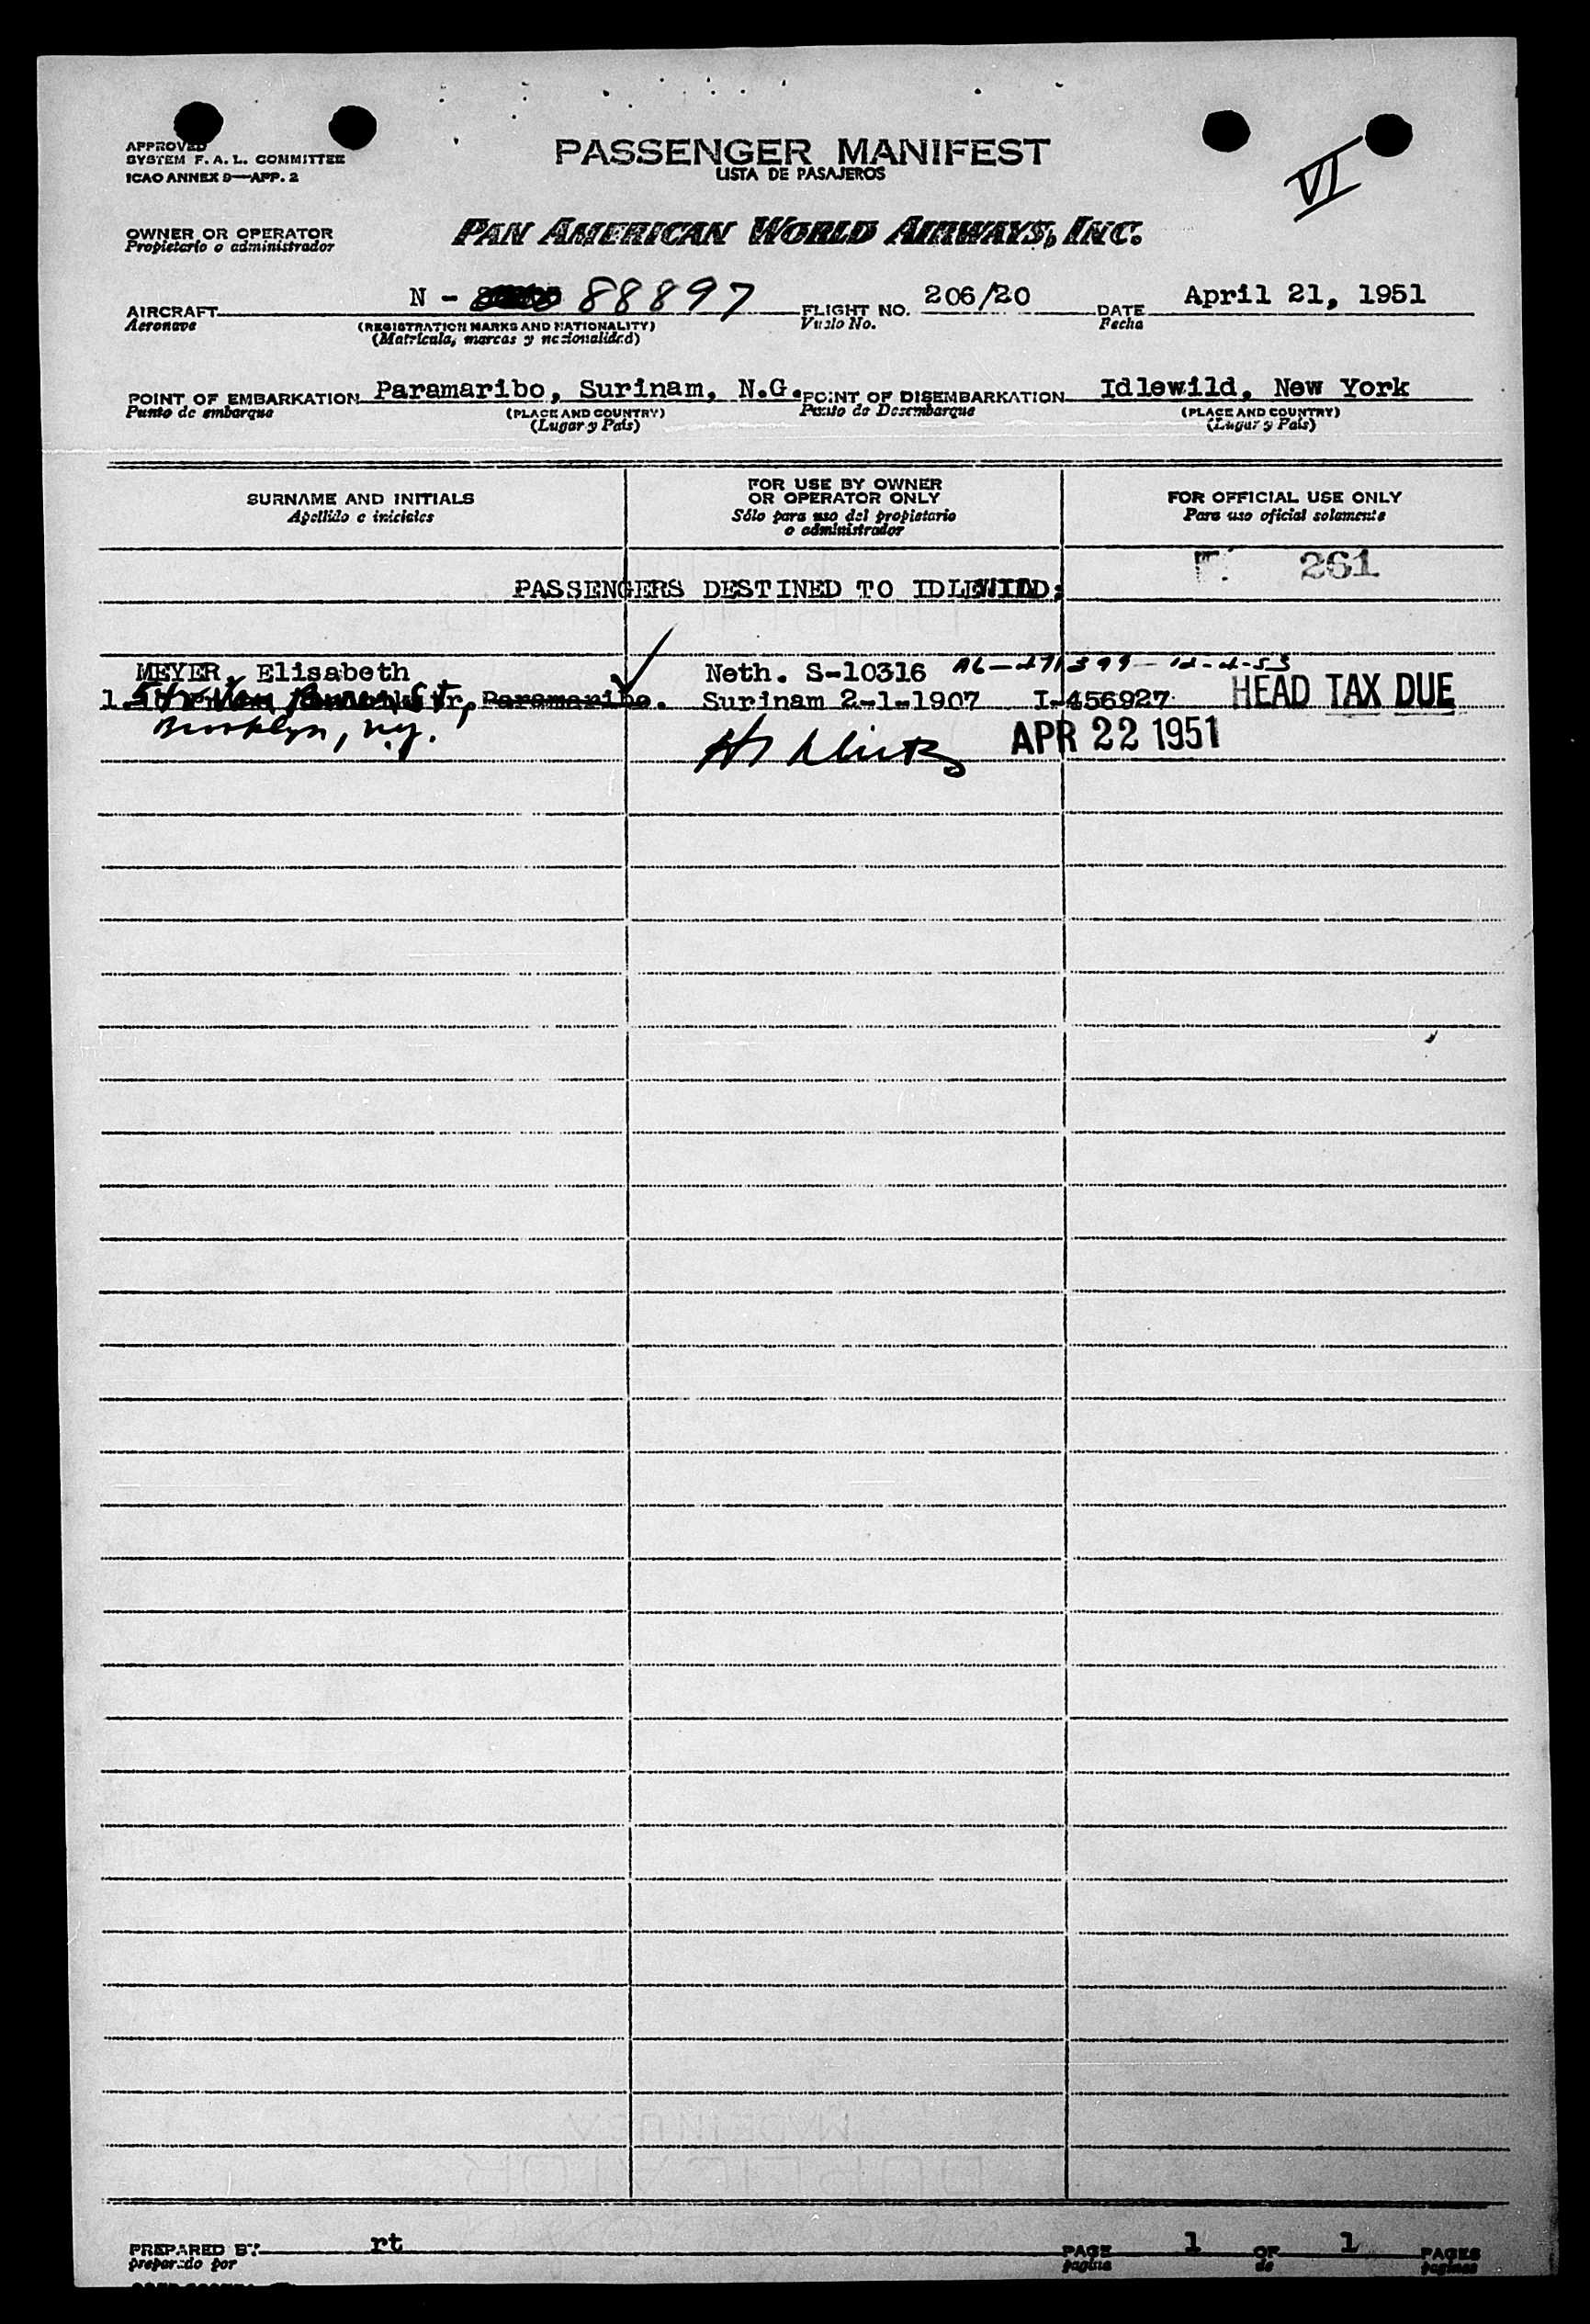 APPROVED
SYSTEM F. A. L. COMMITTEE
ICAO ANNEX 9—APP. 2
PASSENGER MANIFEST
LISTA DE PASAJEROS
VI
OWNER OR OPERATOR
Propietario o administrador
PAN AMERICAN WORLD AIRWAYS, INC.
AIRCRAFT N - 88897 FLIGHT NO. 206/20 DATE April 21, 1951
Aeronave (REGISTRATION MARKS AND NATIONALITY) Vuelo No. Fecha
(Matrícula, marcas y nacionalidad)
POINT OF EMBARKATION Paramaribo, Surinam, N.G. POINT OF DISEMBARKATION Idlewild, New York
Punto de embarque (PLACE AND COUNTRY) Punto de Desembarque (PLACE AND COUNTRY)
(Lugar y País) (Lugar y País)
SURNAME AND INITIALS
Apellido e iniciales
FOR USE BY OWNER
OR OPERATOR ONLY
Sólo para uso del propietario
o administrador
FOR OFFICIAL USE ONLY
Para uso oficial solamente
261
PASSENGERS DESTINED TO IDLEWILD:
MEYER, Elisabeth Neth. S-10316
1. Paramaribo. Surinam 2-1-1907 I-456927 HEAD TAX DUE
Brooklyn, N.Y. APR 22 1951
PREPARED BY rt PAGE 1 OF 1 PAGES
preparado por pagina de paginas